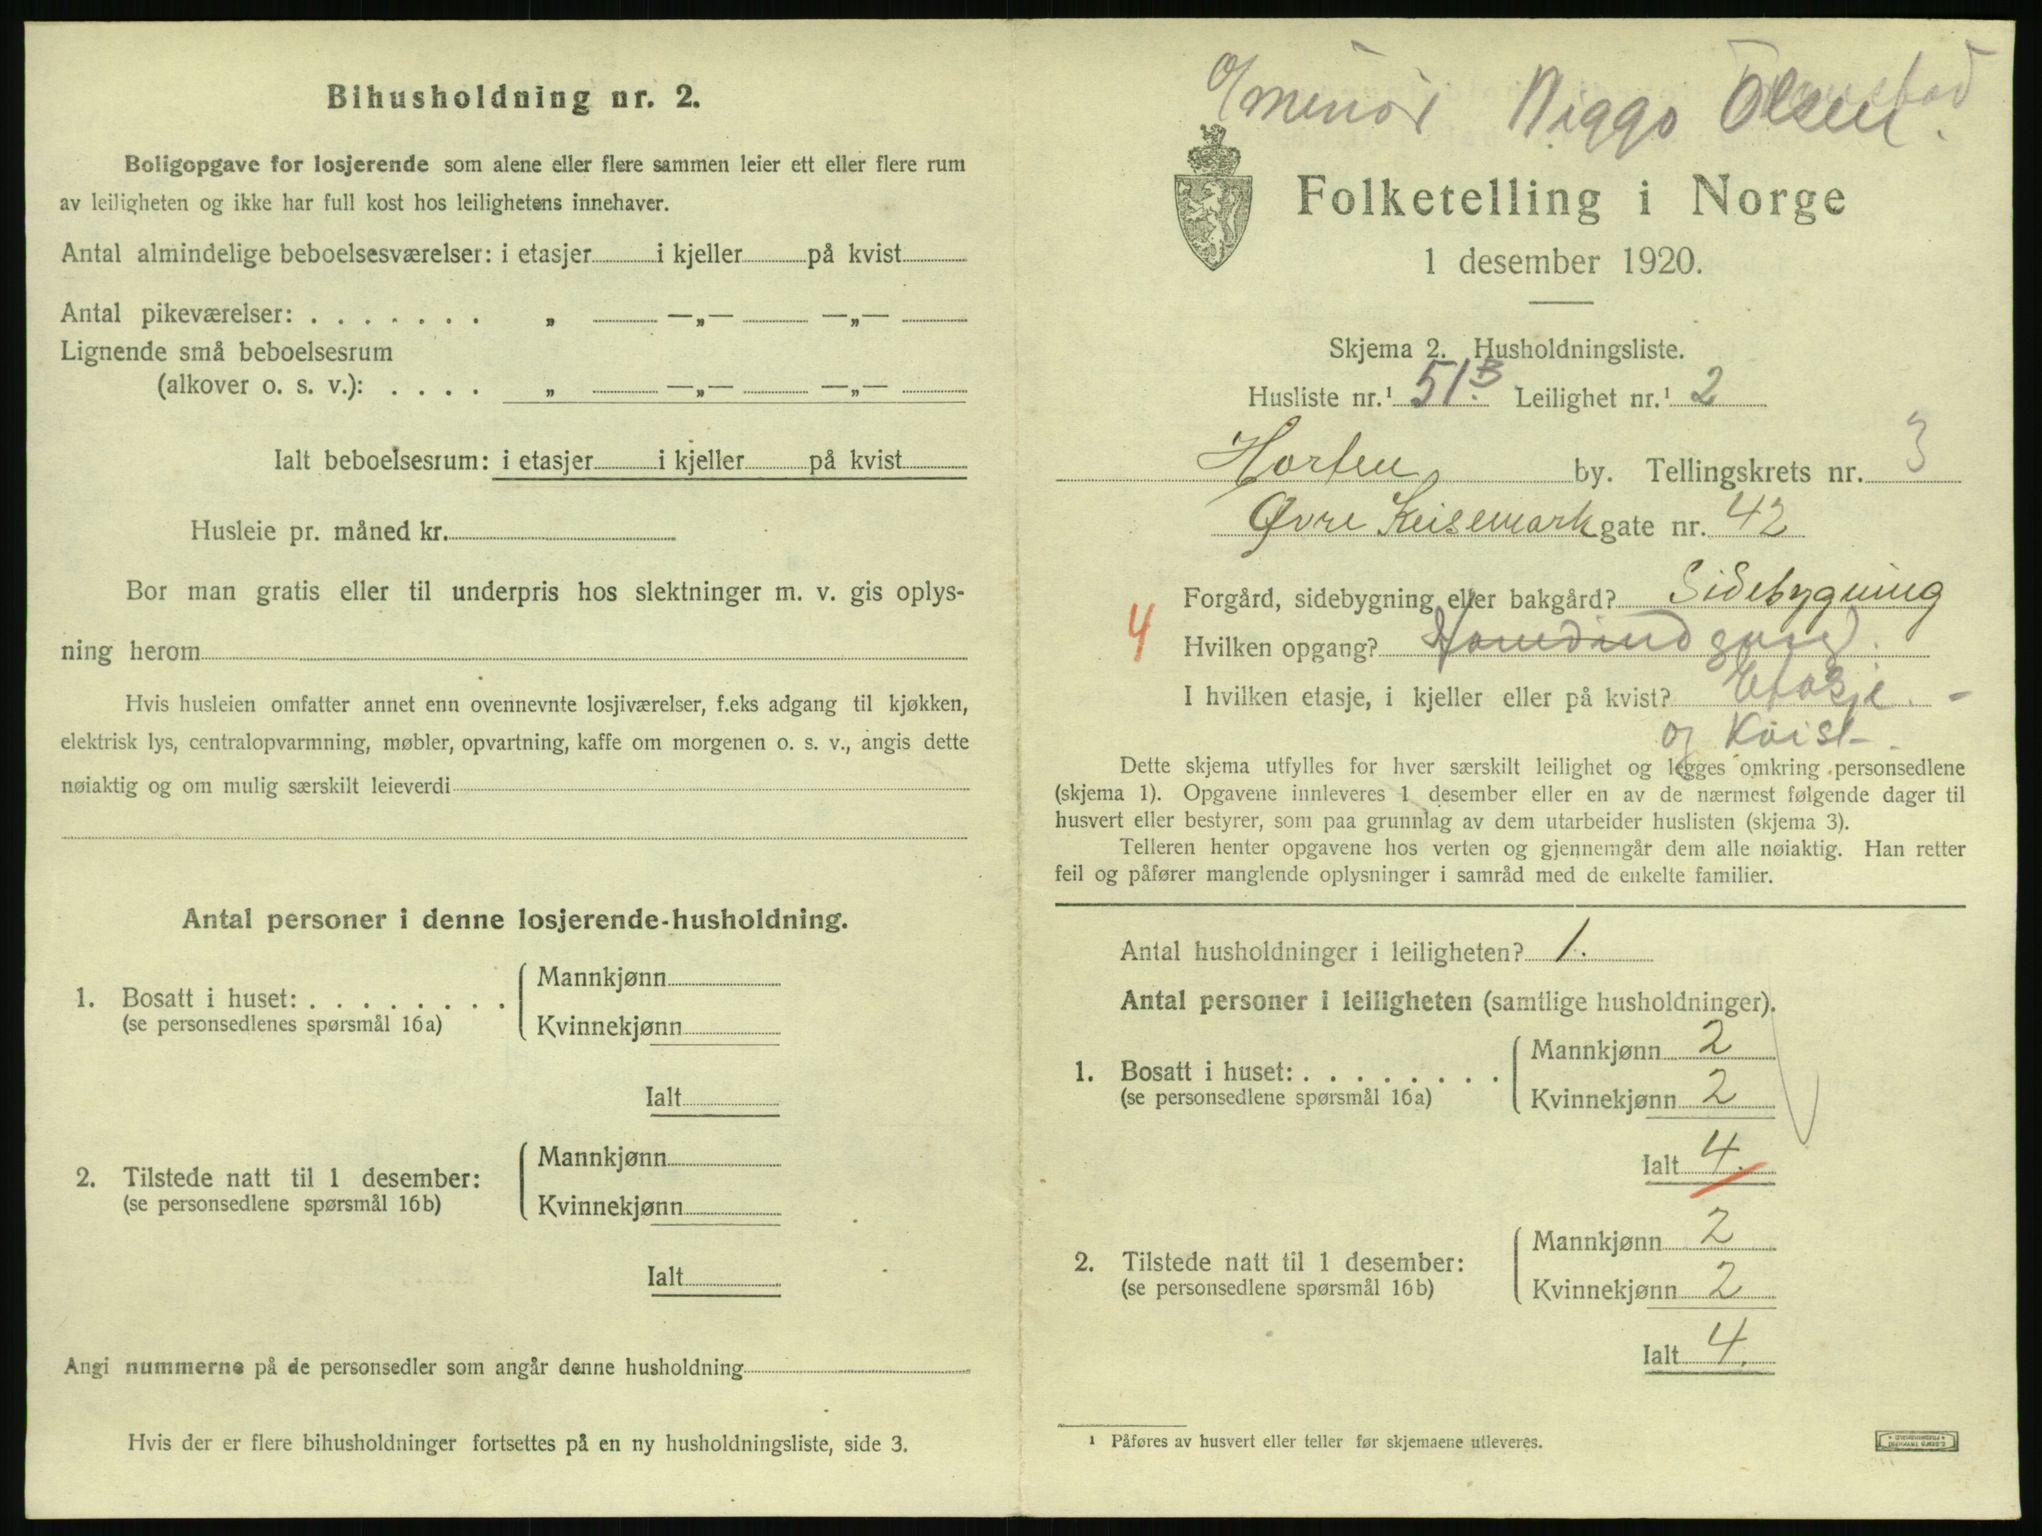 Bihusholdning nr. 2.
Boligopgave for losjerende som alene eller flere sammen leier ett eller flere rum
av leiligheten og ikke har full kost hos leilighetens innehaver.
Antal almindelige beboelsesværelser: i etasjer i kjeller på kvist
Antal pikeværelser: . . . . . . . „ —„— —„—
Lignende små beboelsesrum
(alkover o. s. v.): . . . . „ —„— —„—
Ialt beboelsesrum: i etasjer i kjeller på kvist
Husleie pr. måned kr.
Bor man gratis eller til underpris hos slektninger m. v. gis oplys-
ning herom
Hvis husleien omfatter annet enn ovennevnte losjiværelser, f.eks adgang til kjøkken,
elektrisk lys, centralopvarmning, møbler, opvartning, kaffe om morgenen o. s. v., angis dette
nøiaktig og om mulig særskilt leieverdi
Antal personer i denne losjerende-husholdning.
1. Bosatt i huset: . . . . . . . .
(se personsedlenes spørsmål 16a)
Mannkjønn
Kvinnekjønn
Ialt
2. Tilstede natt til 1 desember:
(se personsedlene spørsmål 16b)
Mannkjønn
Kvinnekjønn
Ialt
Angi nummerne på de personsedler som angår denne husholdning
Hvis der er flere bihusholdninger fortsettes på en ny husholdningsliste, side 3.
Olsen
Folketelling i Norge
1 desember 1920.
Skjema 2. Husholdningsliste.
Husliste nr.¹ 51B. Leilighet nr.¹ 2
Horten by. Tellingskrets nr. 3
Øvre Keisemark gate nr. 42
Forgård, sidebygning eller bakgård? Sidebygning
4 Hvilken opgang?
I hvilken etasje, i kjeller eller på kvist? Etasje. -
og Kvist.
Dette skjema utfylles for hver særskilt leilighet og legges omkring personsedlene
(skjema 1). Opgavene innleveres 1 desember eller en av de nærmest følgende dager til
husvert eller bestyrer, som paa grunnlag av dem utarbeider huslisten (skjema 3).
Telleren henter opgavene hos verten og gjennemgår dem alle nøiaktig. Han retter
feil og påfører manglende oplysninger i samråd med de enkelte familier.
Antal husholdninger i leiligheten? 1.
Antal personer i leiligheten (samtlige husholdninger).
1. Bosatt i huset: . . . . . . . .
(se personsedlene spørsmål 16a)
Mannkjønn 2
Kvinnekjønn 2
Ialt 4.
2. Tilstede natt til 1 desember:
(se personsedlene spørsmål 16b)
Mannkjønn 2
Kvinnekjønn 2
Ialt 4.
¹ Påføres av husvert eller teller før skjemaene utleveres.